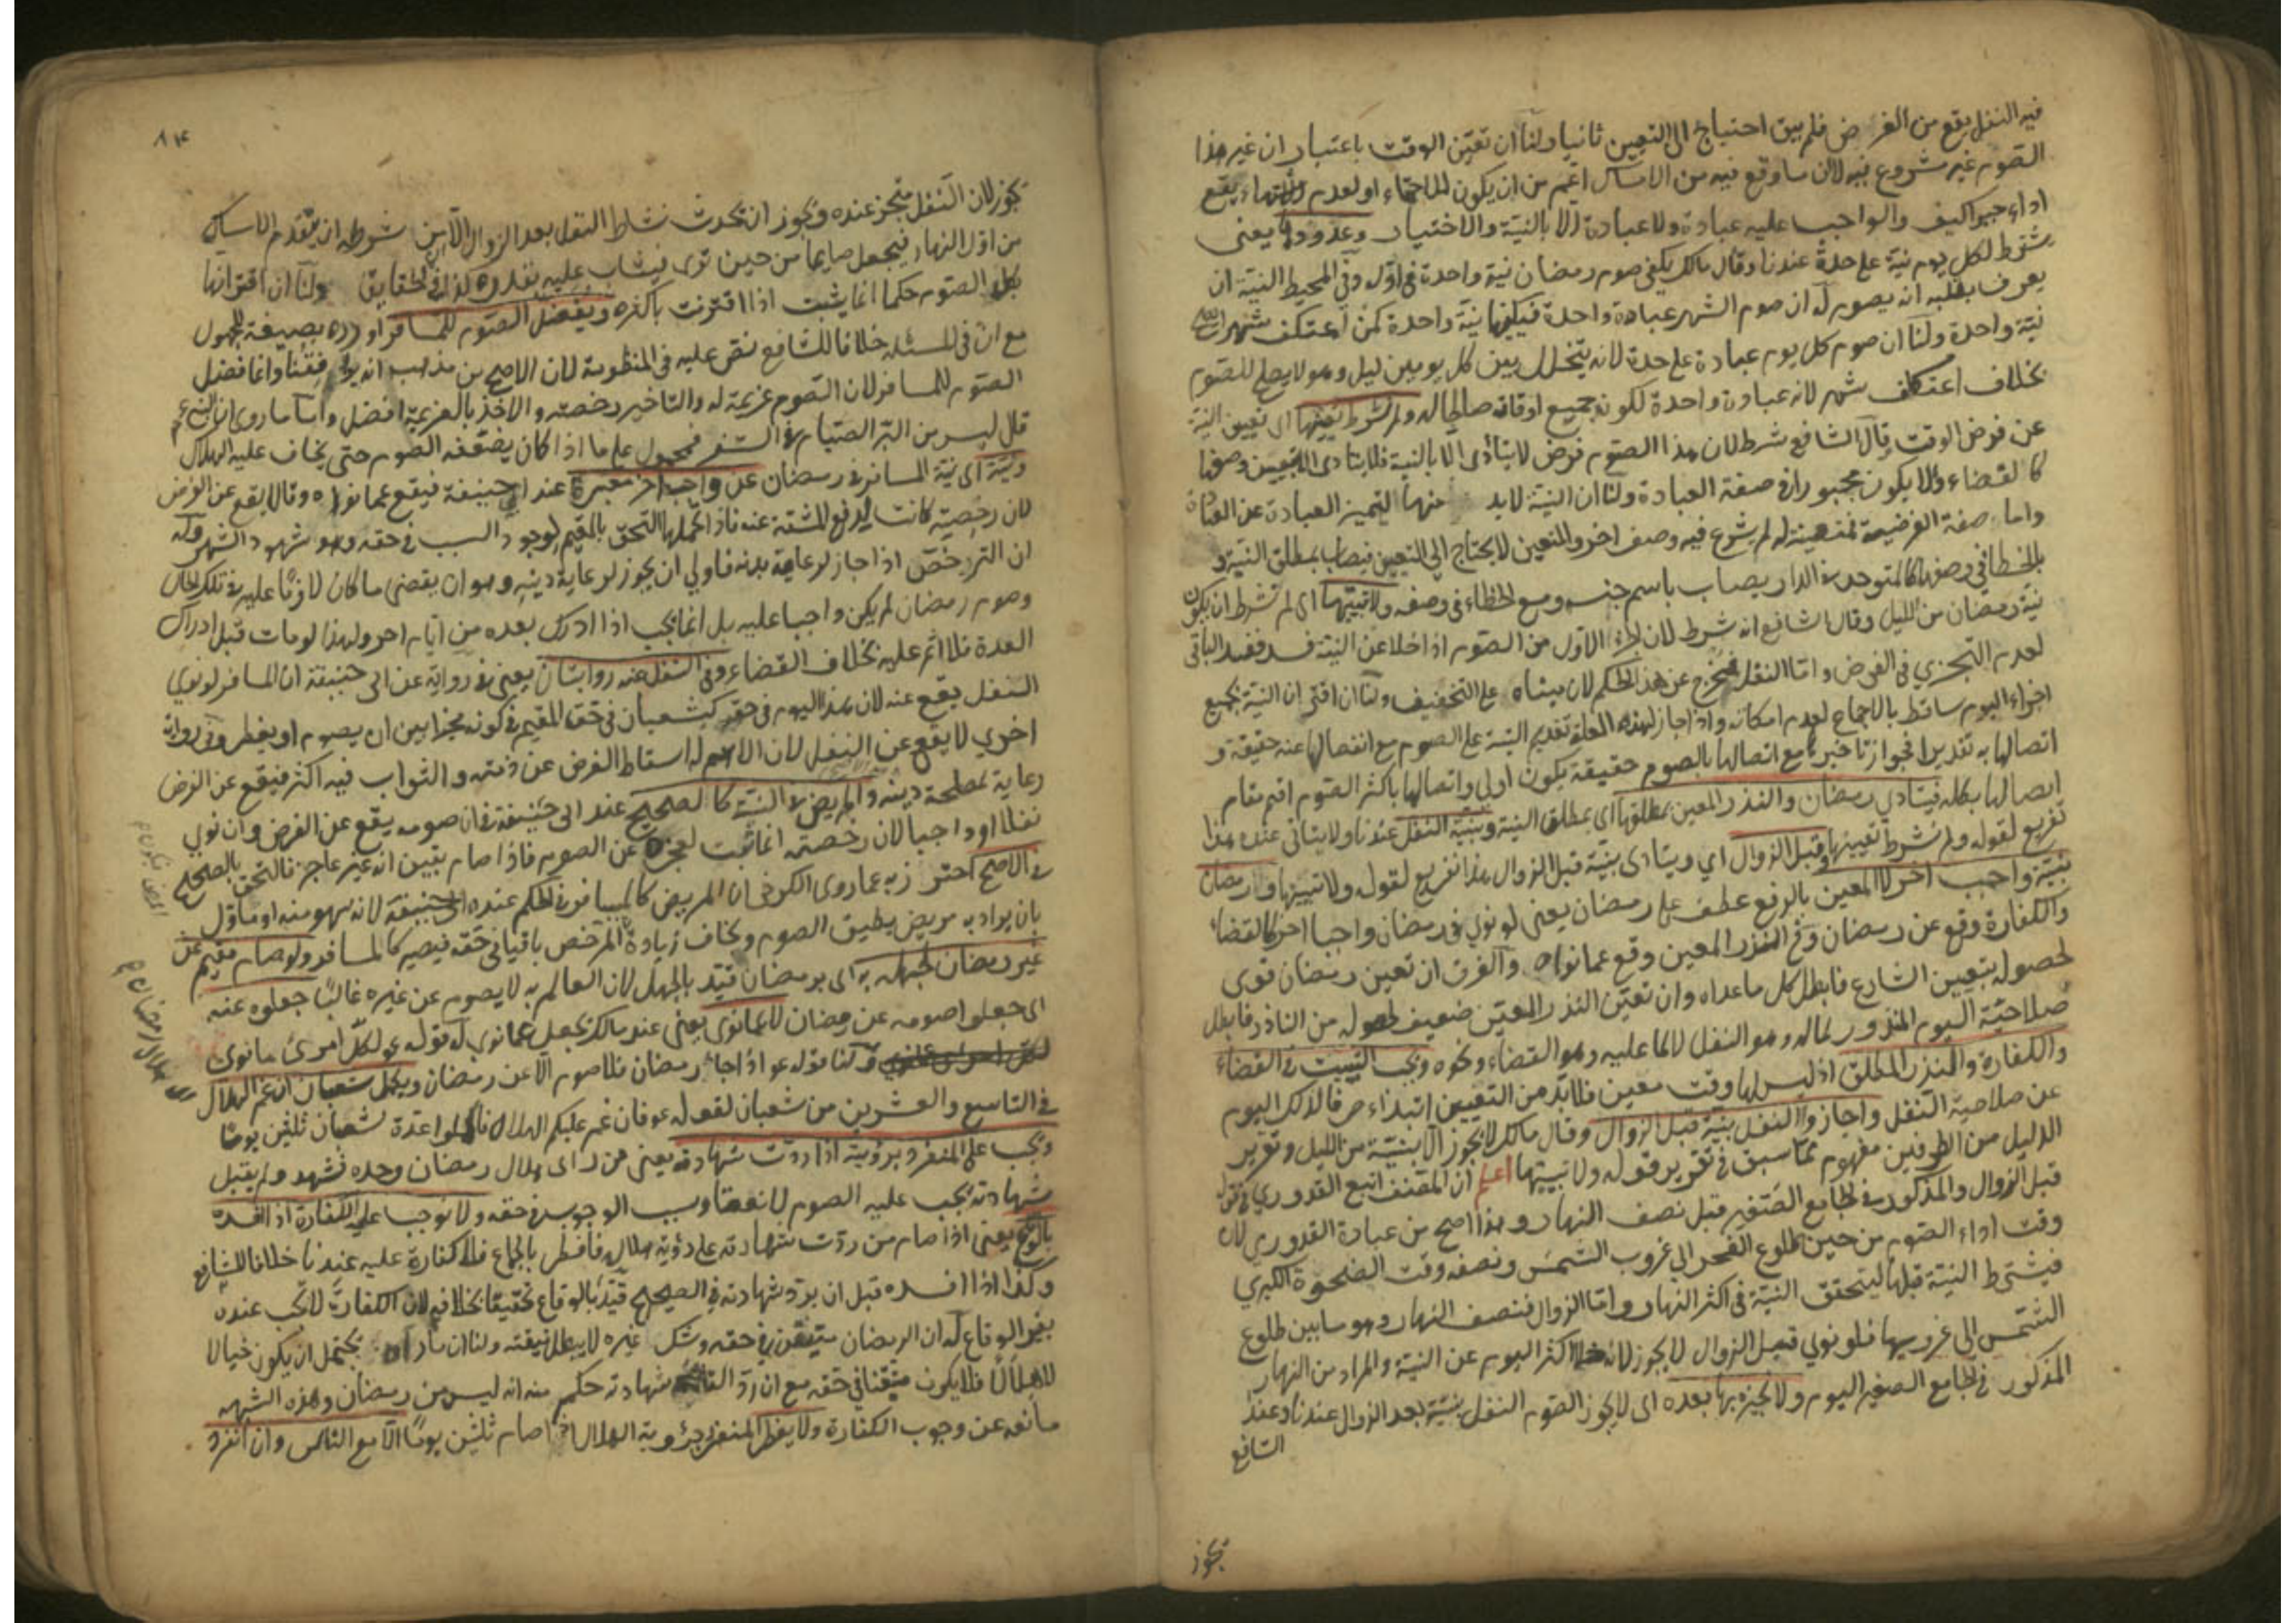 فيه النفل يقع من الفرض فلم يبق احتياج الى التعيين ثانيا ولنا ان تعين الوقت باعتبار ان غير هذا
الصوم غير مشروع فيه لان ما وقع فيه من الامساك اعم من ان يكون للاحتماء او لعدم اشتهاء يقع
اداء جبرا كيف والواجب عليه عبادة ولا عبادة الا بالنية والاختيار وعددها يعنى
يشترط لكل يوم نية على حدة عندنا وقال مالك يكفى صوم رمضان نية واحدة فى اوله وفى المحيط النية ان
يعرف بقلبه انه يصوم له ان صوم الشهر عبادة واحدة فيكفيها نية واحدة كمن اعتكف شهرا
نية واحدة ولنا ان صوم كل يوم عبادة على حدة لانه يتخلل بين كل يومين ليل وهو لا يصلح للصوم
بخلاف اعتكاف شهر لانه عبادة واحدة لكونه جميع اوقاته صالحا له ولم نشرط تعيينها اى تعيين النية
عن فرض الوقت وقال الشافعى شرط لان هذا الصوم فرض لا يتأدى الا بالنية فلا يتادى الا بتعيين وصفها
كالقضاء ولئلا يكون مجبورا فى صفة العبادة ولنا ان النية لا بد منها لتميز العبادة عن العادة
واما صفة الفرضية فمتعينة له لم يشرع فيه وصف اخر والمتعين لا يحتاج الى التعيين فيصاب بمطلق النية و
بالخطأ فى وصفها كالمتوحد فى الدار يصاب باسم جنسه ومع الخطاء فى وصفه ولا تبييتها اى لم نشرط ان يكون
نية رمضان من الليل وقال الشافعى انه شرط لان الجزء الاول من الصوم اذا خلا عن النية فسد ففسد الباقى
لعدم التجزى فى الفرض واما النفل فخرج عن هذا الحكم لان مبناه على التخفيف ولنا ان اقتران النية بجميع
اجزاء اليوم ساقط بالاجماع لعدم امكانه واذا جاز لهذه العلة تقديم النية على الصوم مع انفصالها عنه حقيقة و
اتصالها به تقديرا فجواز تاخيرها مع اتصالها بالصوم حقيقة يكون اولى واتصالها باكثر الصوم اقيم مقام
اتصالها بكله فيتادى رمضان والنذر المعين بمطلقها اى بمطلق النية وبنية النفل عندنا ولا يتاتى عنده هذا
تفريع لقوله ولم نشرط تعيينها وقبل الزوال اى ويتادى بنية قبل الزوال هذا تفريع لقوله ولا تبييتها ورمضان
بنية واجب اخر لا المعين بالرفع عطف على رمضان يعنى لو نوى فى رمضان واجبا اخر كالقضاء
والكفارة وقع عن رمضان وفى النذر المعين وقع عما نواه والفرق ان تعين رمضان قوى
لحصوله بتعيين الشارع فابطل كل ما عداه وان تعين النذر المعين ضعيف لحصوله من الناذر فابطل
صلاحية اليوم المنذور لماله وهو النفل لا لما عليه وهو القضاء ونحوه ويجب التبييت فى القضاء
والكفارة والنذر المطلق اذ ليس لها وقت معين فلا بد من التعيين ابتداء صرفا لذلك اليوم
عن صلاحية النفل واجازوا النفل بنية قبل الزوال وقال مالك لا يجوز الا بنية من الليل وتقرير
الدليل من الطرفين مفهوم مما سبق فى تقرير قوله ولا تبييتها اعلم ان المصنف اتبع القدورى فى قوله
قبل الزوال والمذكور فى الجامع الصغير قبل نصف النهار وهذا اصح من عبارة القدورى لان
وقت اداء الصوم من حين طلوع الفجر الى غروب الشمس ونصفه وقت الضحوة الكبرى
فيشترط النية قبلها ليتحقق النية فى اكثر النهار واما الزوال فنصف النهار وهو ما بين طلوع
الشمس الى غروبها فلو نوى قبيل الزوال لا يجوز لانه خلا اكثر اليوم عن النية والمراد من النهار
المذكور فى الجامع الصغير اليوم ولا يجيزه بها بعده اى لا يجوز الصوم النفل بنية بعد الزوال عندنا وعند
الشافعى
يجوز
٨٤
يجوز لان النفل متجز عنده ويجوز ان يحدث نشاط النفل بعد الزوال الا ان من شرطه ان يتقدم الامساك
من اول النهار فيجعل صايما من حين نوى فيثاب عليه بقدره كذا فى الحقايق ولنا ان اقترانها
بكل الصوم حكما انما يثبت اذا اقترنت باكثره ويفضل الصوم للمسافر اورده بصيغة المجهول
مع ان فى المسئلة خلافا للشافعى نص عليه فى المنظومة لان الاصح من مذهبه انه يوافقنا وانما فضل
الصوم للمسافر لان الصوم عزيمة له والتاخير رخصة والاخذ بالعزيمة افضل واما ما روى ان النبى عم
قال ليس من البر الصيام فى السفر فمحمول على ما اذا كان يضعفه الصوم حتى يخاف عليه الهلاك
ونيته اى نية المسافر فى رمضان عن واجب اخر معتبرة عند ابى حنيفة فيقع عما نواه وقالا يقع عن الفرض
لان رخصته كانت لدفع المشقة عنه فاذا تحملها التحق بالمقيم لوجود السبب فى حقه وهو شهود الشهر وله
ان الترخص اذا جاز لرعاية بدنه فاولى ان يجوز لرعاية دينه وهو ان يقضى ما كان لازما عليه فى تلك الحال
وصوم رمضان لم يكن واجبا عليه بل انما يجب اذا ادرك بعده من ايام اخر ولهذا لو مات قبل ادراك
العدة فلا اثم عليه بخلاف القضاء وفى النفل عنه روايتان يعنى فى رواية عن ابى حنيفة ان المسافر لو نوى
النفل يقع عنه لان هذا اليوم فى حقه كشعبان فى حق المقيم فى كونه مخيرا بين ان يصوم او يفطر وفى رواية
اخرى لا يقع عن النفل لان الاهم له اسقاط الفرض عن ذمته والثواب فيه اكثر فيقع عن الفرض
رعاية لمصلحة دينه والمريض فى النية كالصحيح عند ابى حنيفة فان صومه يقع عن الفرض وان نوى
نفلا او واجبا لان رخصته انما تثبت لعجزه عن الصوم فاذا صام تبين انه غير عاجز فالتحق بالصحيح
فى الاصح احترز به عما روى الكرخى ان المريض كالمسافر فى الحكم عنده ابى حنيفة لانه سهو منه او ماول
بان يراد به مريض يطيق الصوم ويخاف زيادة المرض باقيا فى حقه فيصير كالمسافر ولو صام مقيم عن
غير رمضان لجهله به اى برمضان قيد بالجهل لان العالم به لا يصوم عن غيره غالبا جعلوه عنه
اى جعلوا صومه عن رمضان لا عما نوى يعنى عند مالك يجعل عما نوى له قوله عم لكل امرئ ما نوى
ولنا قوله عم اذا جاء رمضان فلا صوم الا عن رمضان ويكمل شعبان ان غم الهلال
فى التاسع والعشرين من شعبان لقوله عم فان غم عليكم الهلال فاكملوا عدة شعبان ثلثين يوما
ويجب على المنفرد برؤيته اذا ردت شهادته يعنى من راى هلال رمضان وحده فشهد ولم يقبل
شهادته يجب عليه الصوم لانعقاد سبب الوجوب فى حقه ولا نوجب عليه الكفارة اذا افسده
بالوقاع يعنى اذا صام من ردت شهادته على رؤية هلاله فافطر بالجماع فلا كفارة عليه عندنا خلافا للشافعى
وكذا اذا افسده قبل ان يرد شهادته فى الصحيح قيد بالوقاع تحقيقا بخلافه لان الكفارة لا تجب عنده
بغير الوقاع له ان الرمضان متيقن فى حقه وشك غيره لا يبطل تيقنه ولنا ان ما رآه يحتمل ان يكون خيالا
لا هلالا فلا يكون متيقنا فى حقه مع ان رد القاضى شهادته حكم منه انه ليس من رمضان وهذه الشبهة
مانعه عن وجوب الكفارة ولا يفطر المنفرد برؤية الهلال اذا صام ثلثين يوما الا مع الناس وان انفرد